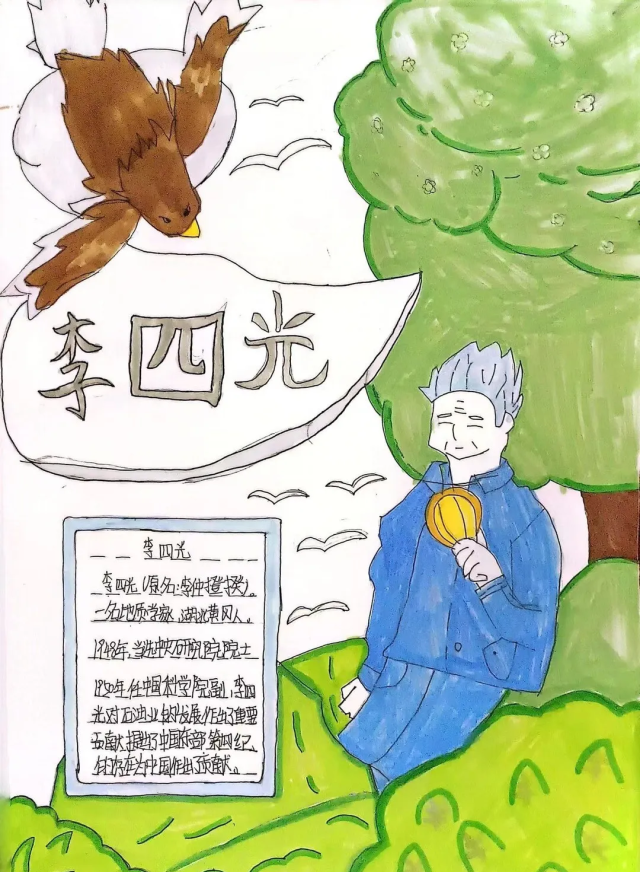 李四光
李四光
李四光(原名:李仲揆)。
一名地质学家,湖北黄冈人。
1948年,当选中央研究院院士
1950年任中国科学院副,李四
光对石油业的发展作出了重要
贡献提出了中国东部第四纪
为中国作出了贡献。